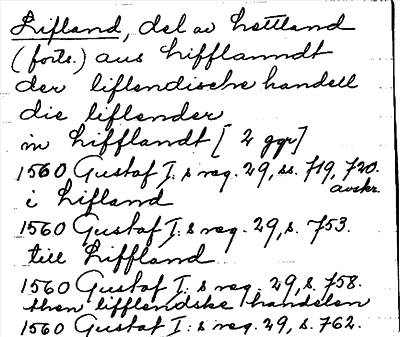 Lifland, del av Lettland
(forts.) aus Lifflanndt
der liflendische handell
die liflender
in Lifflandt [2 ggr]
1560 Gustaf I:s reg. 29, ss. 719, 720.
avskr.
i Lifland
1560 Gustaf I:s reg. 29, s. 753.
till Liffland
1560 Gustaf I:s reg. 29, s. 758.
then lifflendske handelen
1560 Gustaf I:s reg. 29, s. 762.